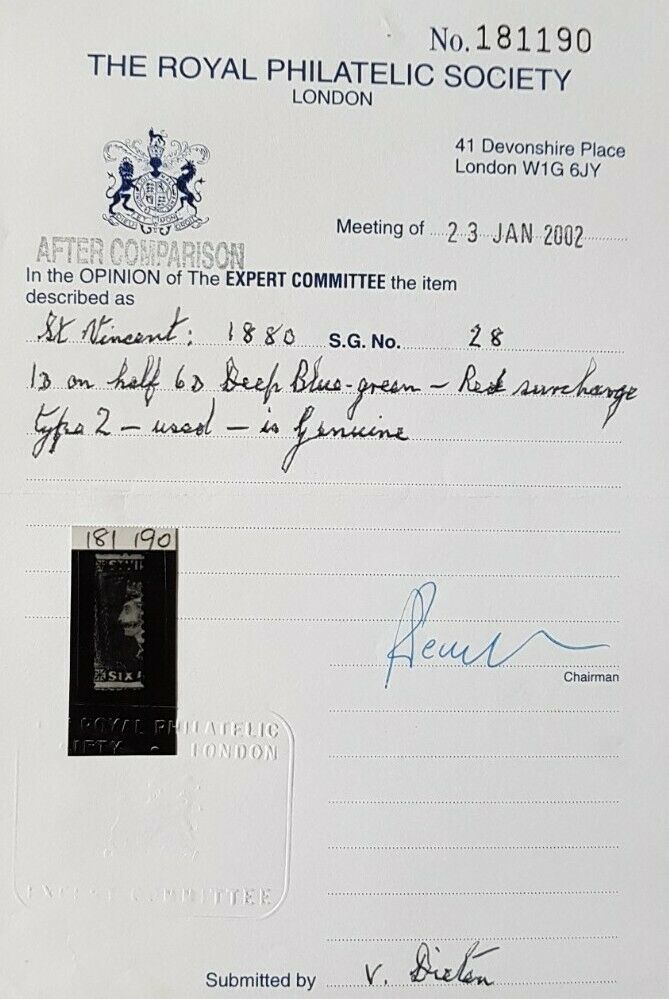 No. 181190
THE ROYAL PHILATELIC SOCIETY
LONDON
41 Devonshire Place
London W1G 6JY
Meeting of 23 JAN 2002
AFTER COMPARISON
In the OPINION of The EXPERT COMMITTEE the item
described as
St Vincent: 1880 S.G. No. 28
1D on half 6D Deep Blue-green – Red surcharge
type 2 – used – is Genuine
181 190
SIX
Chairman
ROYAL PHILATELIC
LONDON
EXPERT COMMITTEE
Submitted by V. Dieten